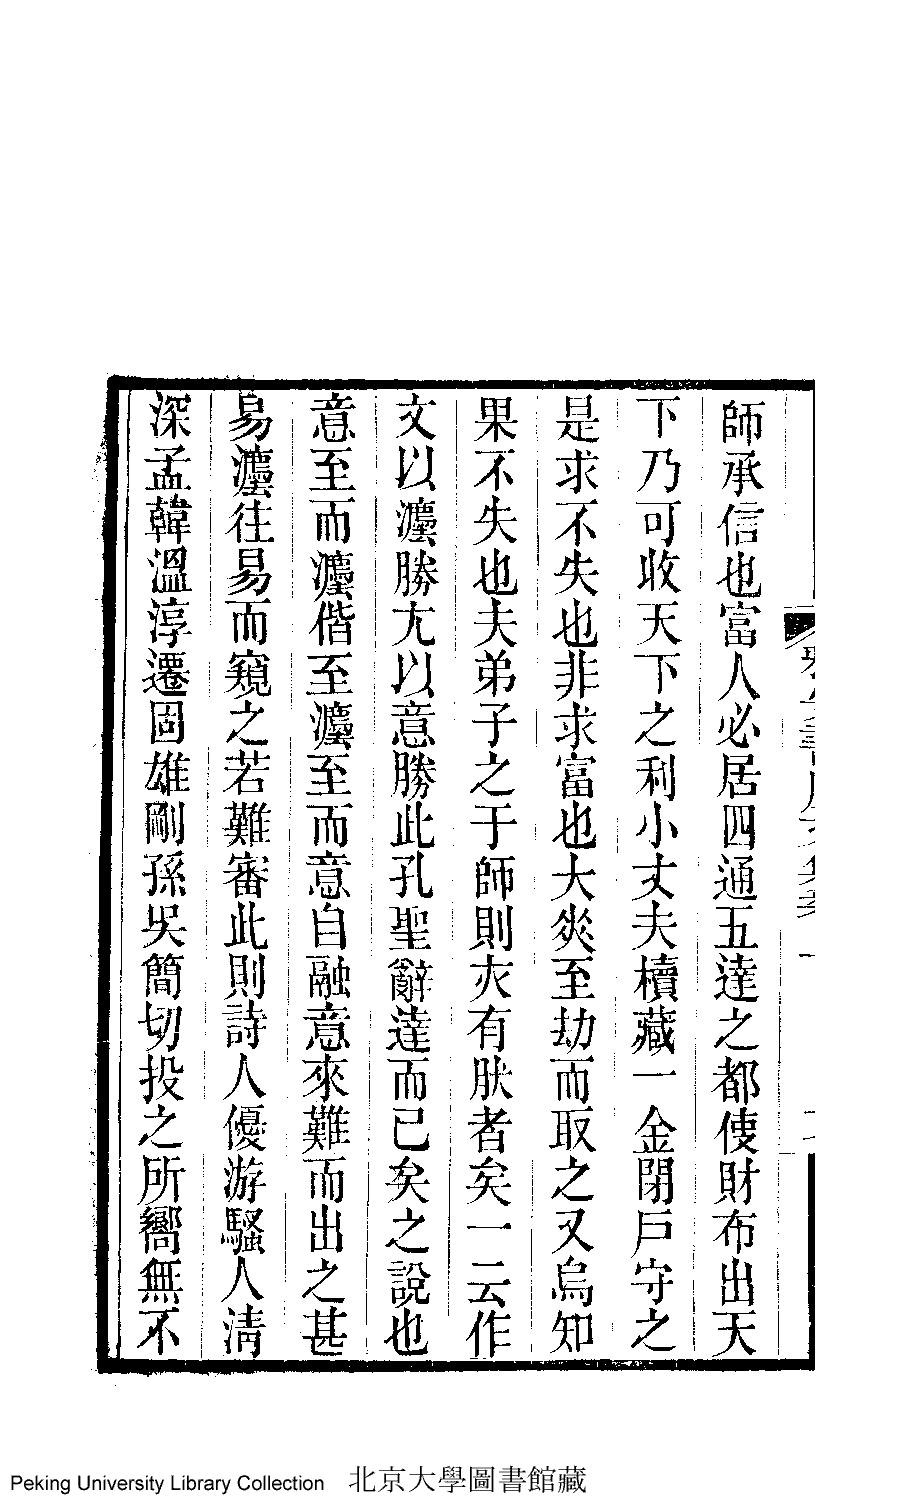 師承信也富人必居四通五達之都使財布出天
下乃可收天下之利小丈夫櫝藏一金閉戶守之
是求不失也非求富也大至劫而取之又烏知
果不失也夫弟子之于師則亦有肰者矣一云作
文以灋勝尤以意勝此孔聖辭達而已矣之說也
意至而灋偕至灋至而意自融意來難而出之甚
易灋往易而窺之若難審此則詩人優游騷人清
深孟韓溫淳遷固雄剛孫吳簡切投之所嚮無不
Peking University Library Collection 北京大學圖書館藏